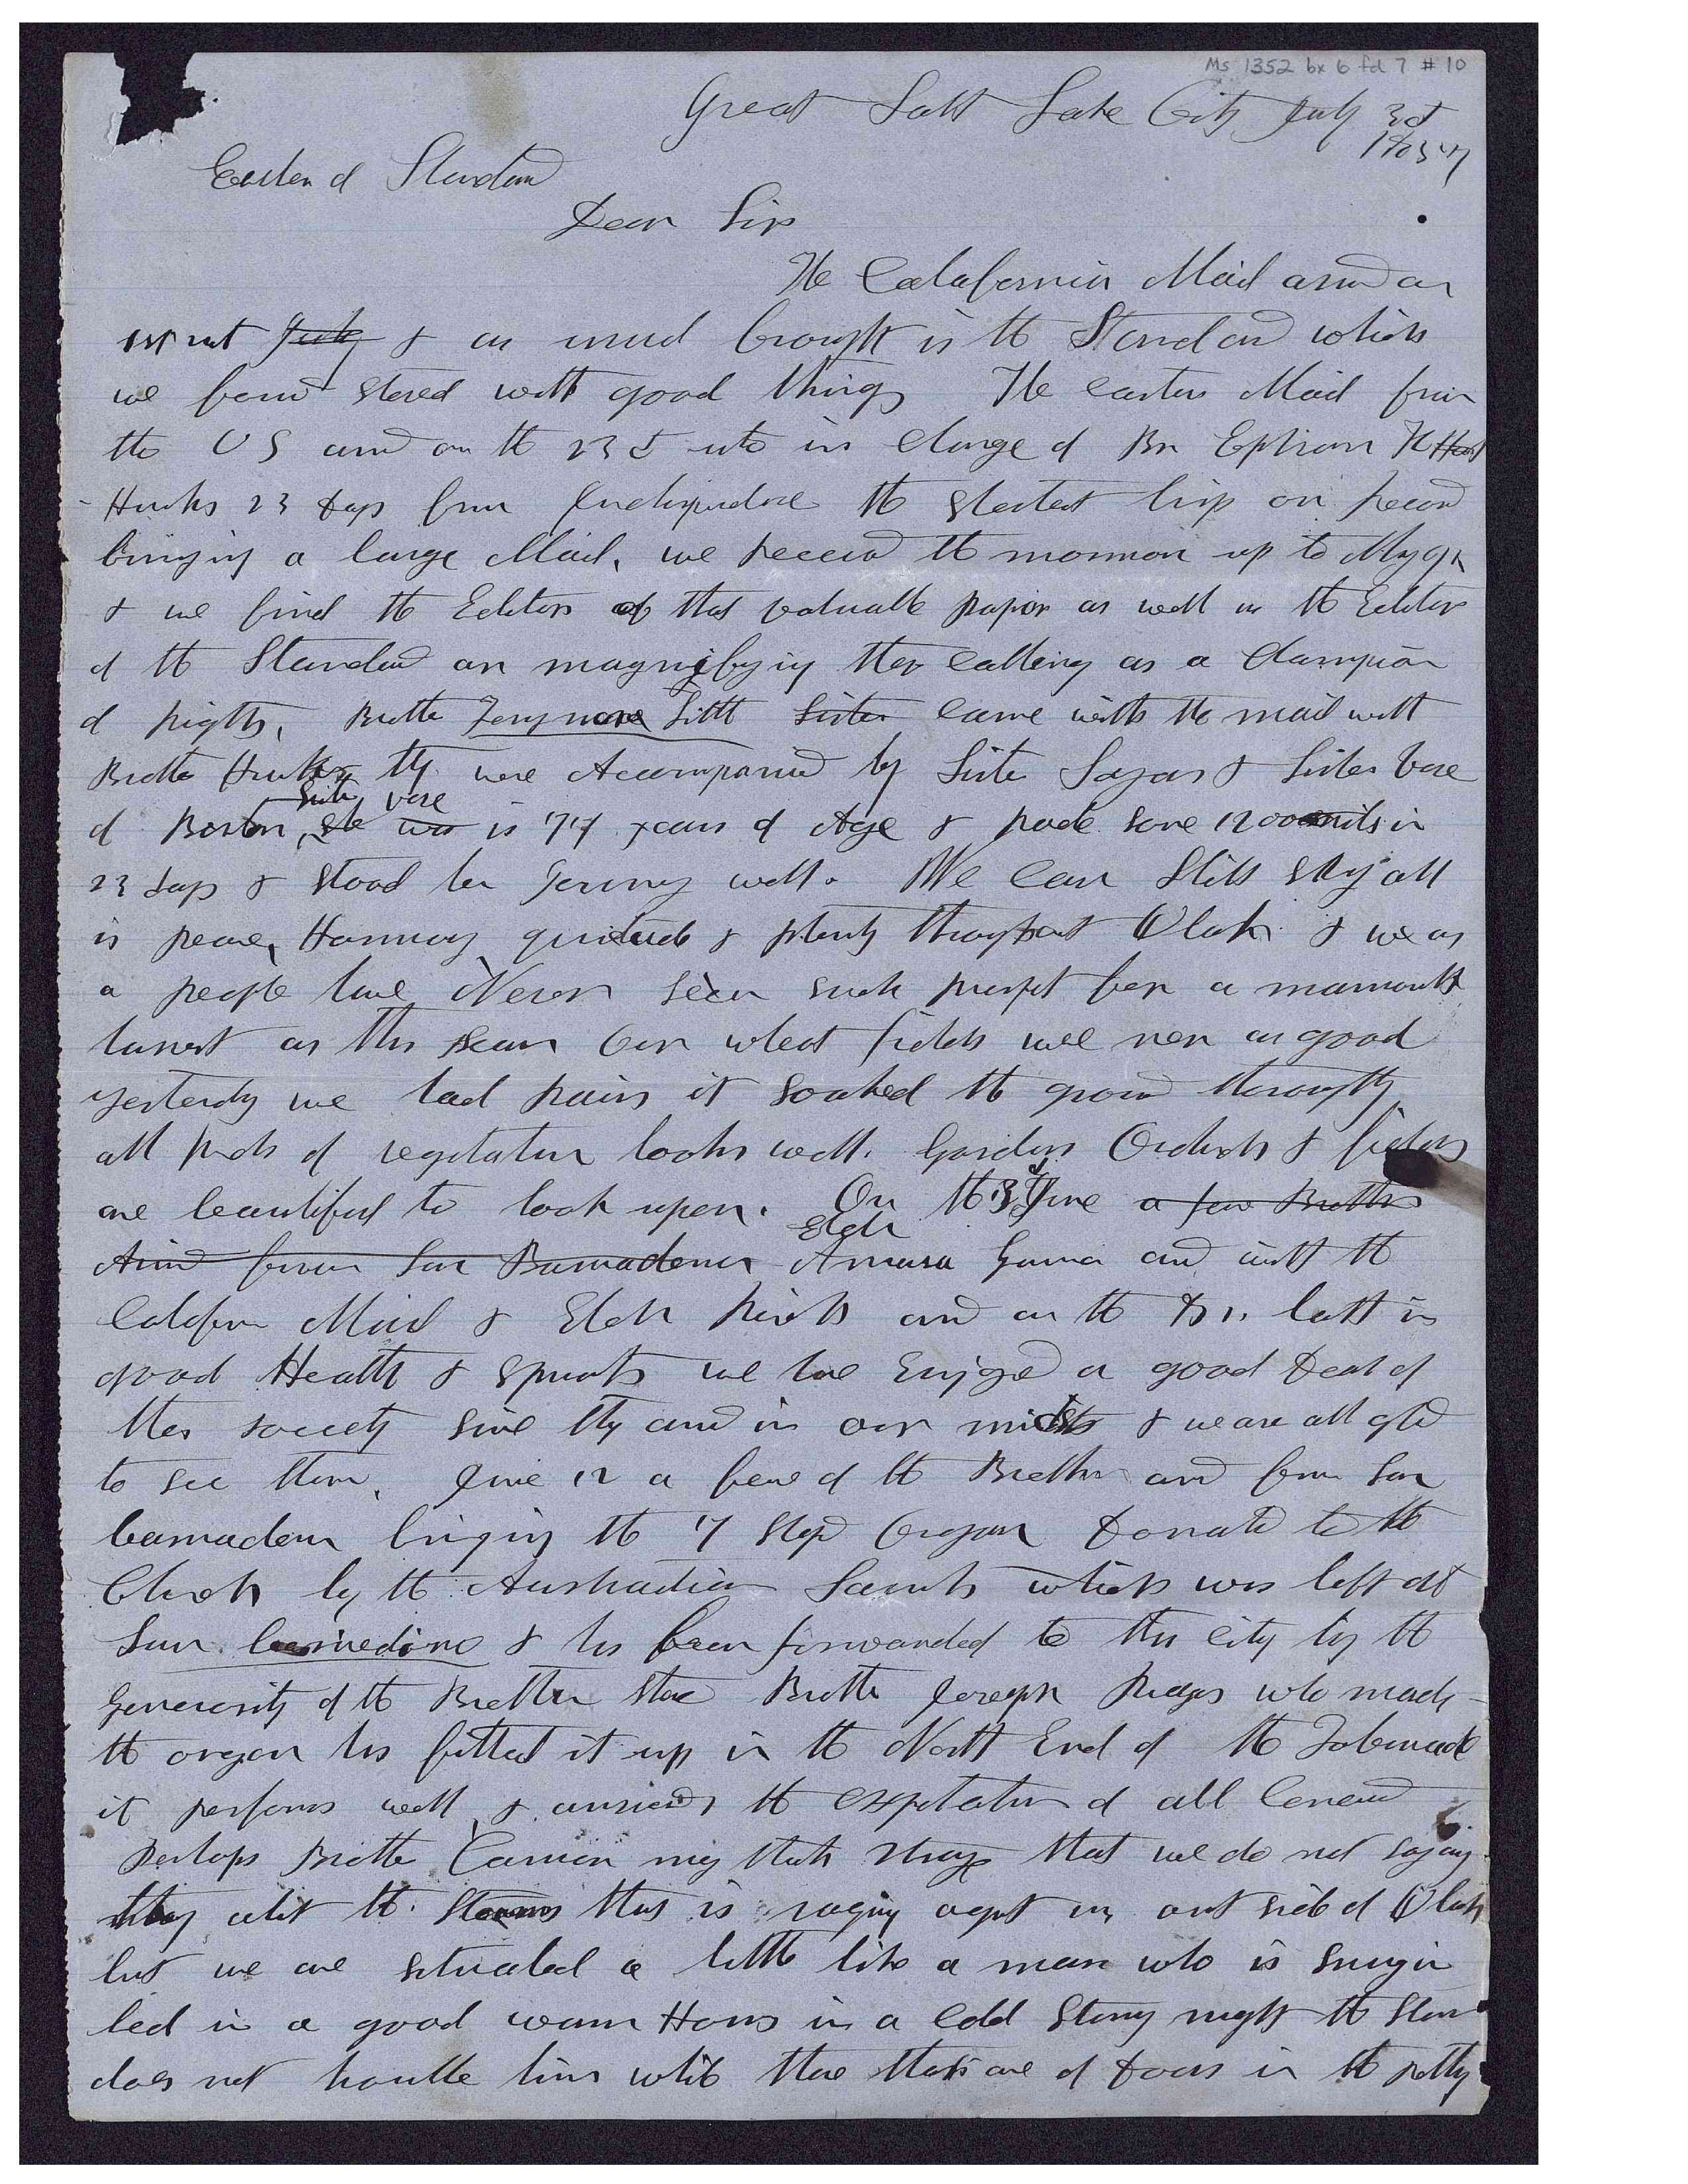 Ms 1352 bx 6 fd 7 #10
Great Salt Lake City July 3d
1857
Editor of Standard
Dear Sir
The Calafornia Mail arived on
1st inst July & as usual brought us the Standard which
we found stored with good things The eastern Mail from
the US arived on the 23d ulto in Charge of Br Ephraim K
Hanks 23 days from Independence the shortest trip on record
bringing a large Mail, we received the mormon up to May 9th
& we find the Editor of that valuable paper as well as the Editor
of the Standard are magnifying their calling as a Champion
of rights, Brother Ferymore Little Sister came with the mail with
Brother Hanks they were Accompanied by Sister Sayers & Sister Vose
of Boston, Sister Vose she was is 77 years of Age & rode some 1200 miles in
23 days & stood her Jerney well. We can Still say all
is peace, Harmony quietude & plenty throughout Utah & we as
a people have Never seen such prospet for a mamouth
harvest as this year Our wheat fields were never as good
yesterday we had rain it soaked the ground thoroughly
all kinds of vegitation looks well. Gardens Orchards & fields
are beautiful to look upon. On the 3d June a few Brethren
Arived from San Bernadeno Elder Amasa Lyman arived with the
Calafornia Mail & Elder Rich arived on the both in
good Health & Spirits we have Enjoyed a good deal of
their society since they arived in our midst & we are all glad
to see them. June 12 a few of the Brethren arived from San
bernadeno bringing the 7 Stop Organ donated to the
Church by the Australian Saints which was left at
San bernedino & has been forwarded to this city by the
Generosity of the Brethren there Brother Joseph Ridges who made
the organ has fitted it up in the North End of the Tabernacle
it performs well & answers the expectation of all concerned
Perhaps Brother Cannon may think strange that we do not say any
thing about the Storm that is raging against us out side of Utah
but we are situated a little like a man who is snug in
bed in a good warm House in a cold Stormy night the storm
does not trouble him while those that are of doors in the pelting